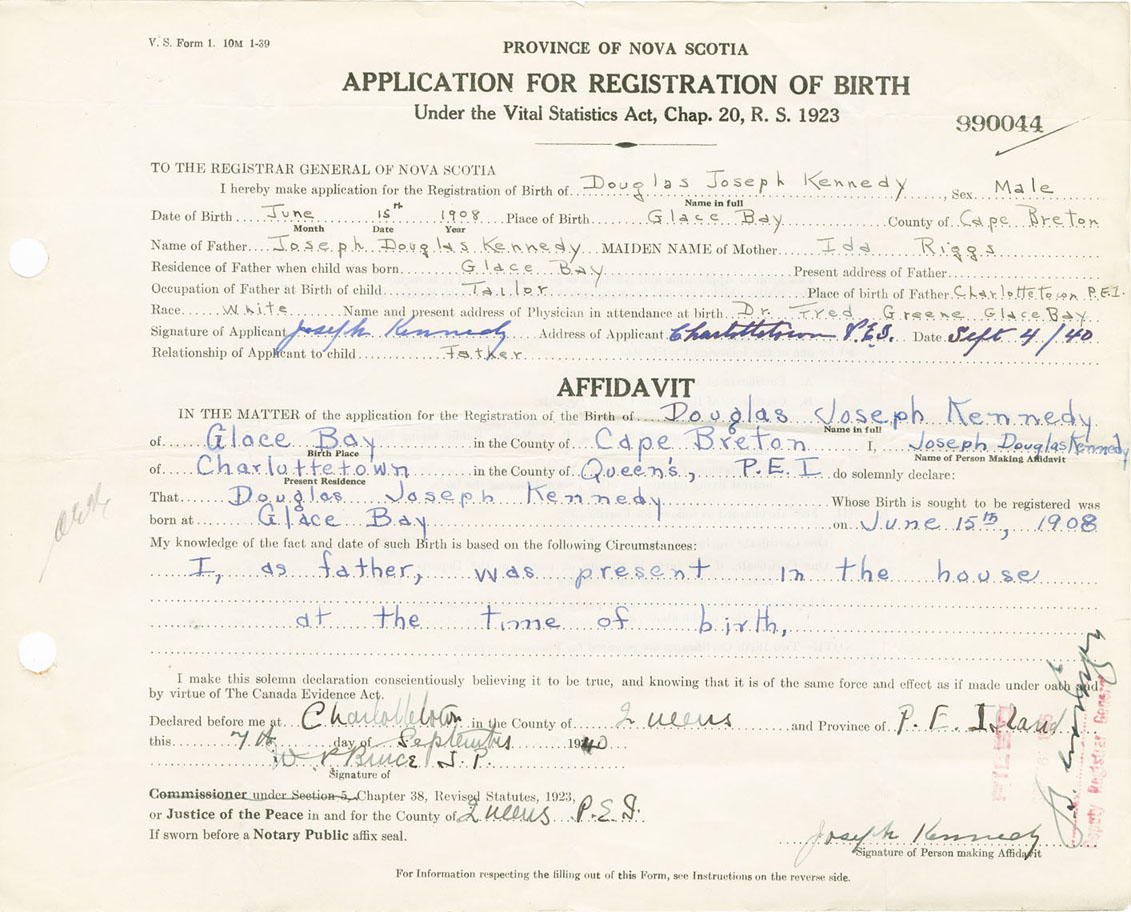 V. S. Form 1. 10M 1-39
PROVINCE OF NOVA SCOTIA
APPLICATION FOR REGISTRATION OF BIRTH
Under the Vital Statistics Act, Chap. 20, R. S. 1923
990044
TO THE REGISTRAR GENERAL OF NOVA SCOTIA
I hereby make application for the Registration of Birth of Douglas Joseph Kennedy, Sex Male
Name in full
Date of Birth June 15th 1908 Place of Birth Glace Bay County of Cape Breton
Month Date Year
Name of Father Joseph Douglas Kennedy MAIDEN NAME of Mother Ida Riggs
Residence of Father when child was born Glace Bay Present address of Father
Occupation of Father at Birth of child Tailor Place of birth of Father Charlottetown P.E.I.
Race White Name and present address of Physician in attendance at birth Dr. Fred Greene Glace Bay
Signature of Applicant Joseph Kennedy Address of Applicant Charlottetown P.E.I. Date Sept 4/40
Relationship of Applicant to child Father
AFFIDAVIT
IN THE MATTER of the application for the Registration of the Birth of Douglas Joseph Kennedy
Name in full
of Glace Bay in the County of Cape Breton I, Joseph Douglas Kennedy
Birth Place Name of Person Making Affidavit
of Charlottetown in the County of Queen's, P.E.I do solemnly declare:
Present Residence
That Douglas Joseph Kennedy Whose Birth is sought to be registered was
born at Glace Bay on June 15th, 1908
My knowledge of the fact and date of such Birth is based on the following Circumstances:
I, as father, was present in the house
at the time of birth,
I make this solemn declaration conscientiously believing it to be true, and knowing that it is of the same force and effect as if made under oath and
by virtue of The Canada Evidence Act.
Declared before me at Charlottetown in the County of Queens and Province of P. E. Island
this 7th day of September 1940
Bruce J.P.
Signature of
Commissioner under Section 5, Chapter 38, Revised Statutes, 1923,
or Justice of the Peace in and for the County of Queens P.E.I.
If sworn before a Notary Public affix seal.
Joseph Kennedy
Signature of Person making Affidavit
For Information respecting the filling out of this Form, see Instructions on the reverse side.
FILED
Deputy Registrar General